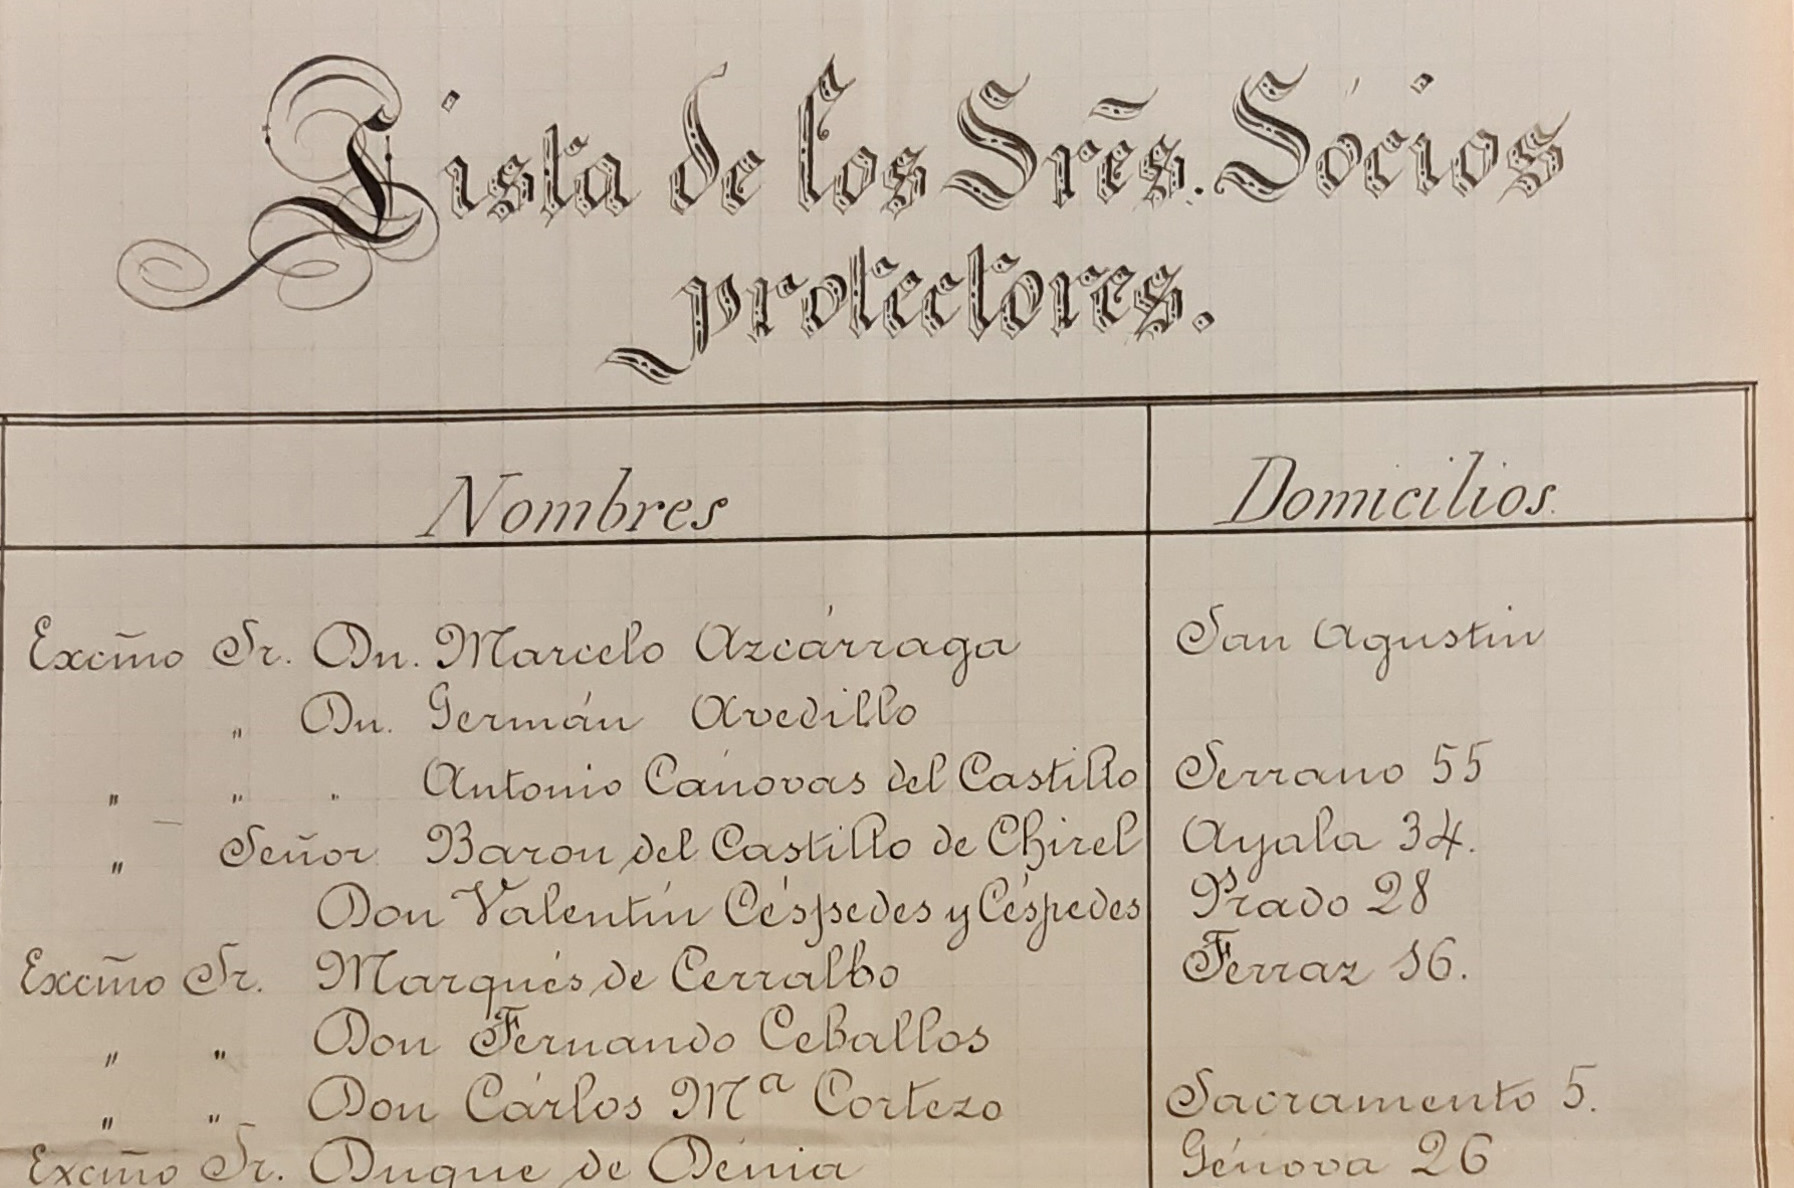 Lista de los Srẽs. Sócios
protectores.
Nombres Domicilios.
Excm̃o Sr. Dn. Marcelo Azcárraga San Agustin
" Dn. Germán Avedillo
" " " Antonio Cánovas del Castillo Serrano 55
" Señor Baron del Castillo de Chirel Ayala 34.
Don Valentín Céspedes y Céspedes Prado 28
Excm̃o Sr. Marqués de Cerralbo Ferraz 16.
" " Don Fernando Ceballos
" " Don Cárlos Mª Cortezo Sacramento 5.
Excm̃o Sr. Duque de Dénia Génova 26